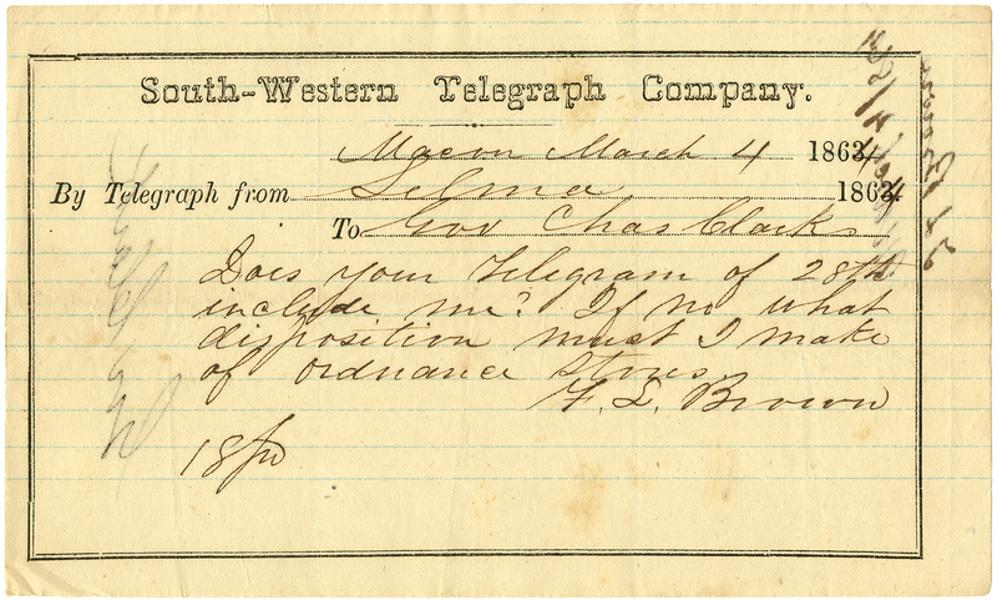 South-Western Telegraph Company.
Macon March 4 1864
By Telegraph from Selma 1864.
To Gov Chas Clark
Does your Telegram of 28th
include me? If no what
disposition must I make
of ordnance stores.
F. L. Brown
18 pd